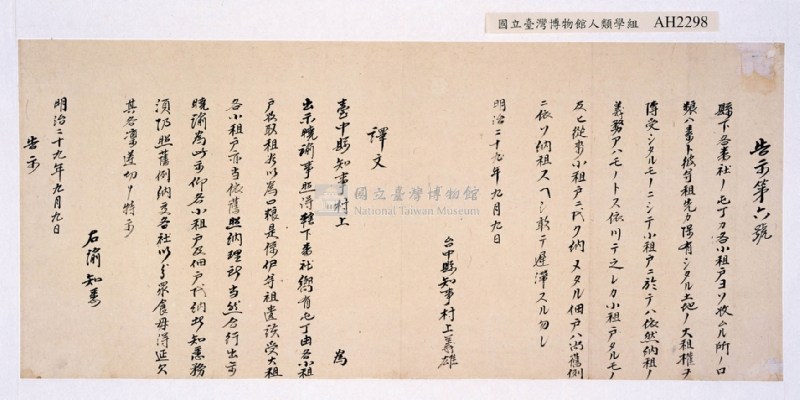 國立臺灣博物館人類學組 AH2298
告示第六號
縣下各番社ノ屯丁カ各小租戶ヨリ收ムル所ノ口
糧ハ素ト彼等祖先カ保有シタル土地ノ大租權ヲ
傳受シタルモノニシテ小租戶ニ於テハ依然納租ノ
義務アルモノトス依テ之レカ小租戶タルモノ
及ヒ從前小租戶ニ代ク納メタル佃戶ハ尚舊例
ニ依リ納租スヘシ敢テ遲滯スル勿レ
明治二十九年九月九日
台中縣知事村上義雄
譯文
臺中縣知事村上 為
出示曉諭事照得轄下番社嚮有屯丁由各小租
戶收取租谷以為口糧是係伊等祖遺該受大租
各小租戶亦當依舊照納理所當然合行出示
曉諭為此示仰各小租戶及佃戶代納者知悉務
須仍照舊例納交各社以分眾食毋得延欠
其各凜遵切切特示
右諭知悉
明治二十九年九月九日
告示
國立臺灣博物館
National Taiwan Museum